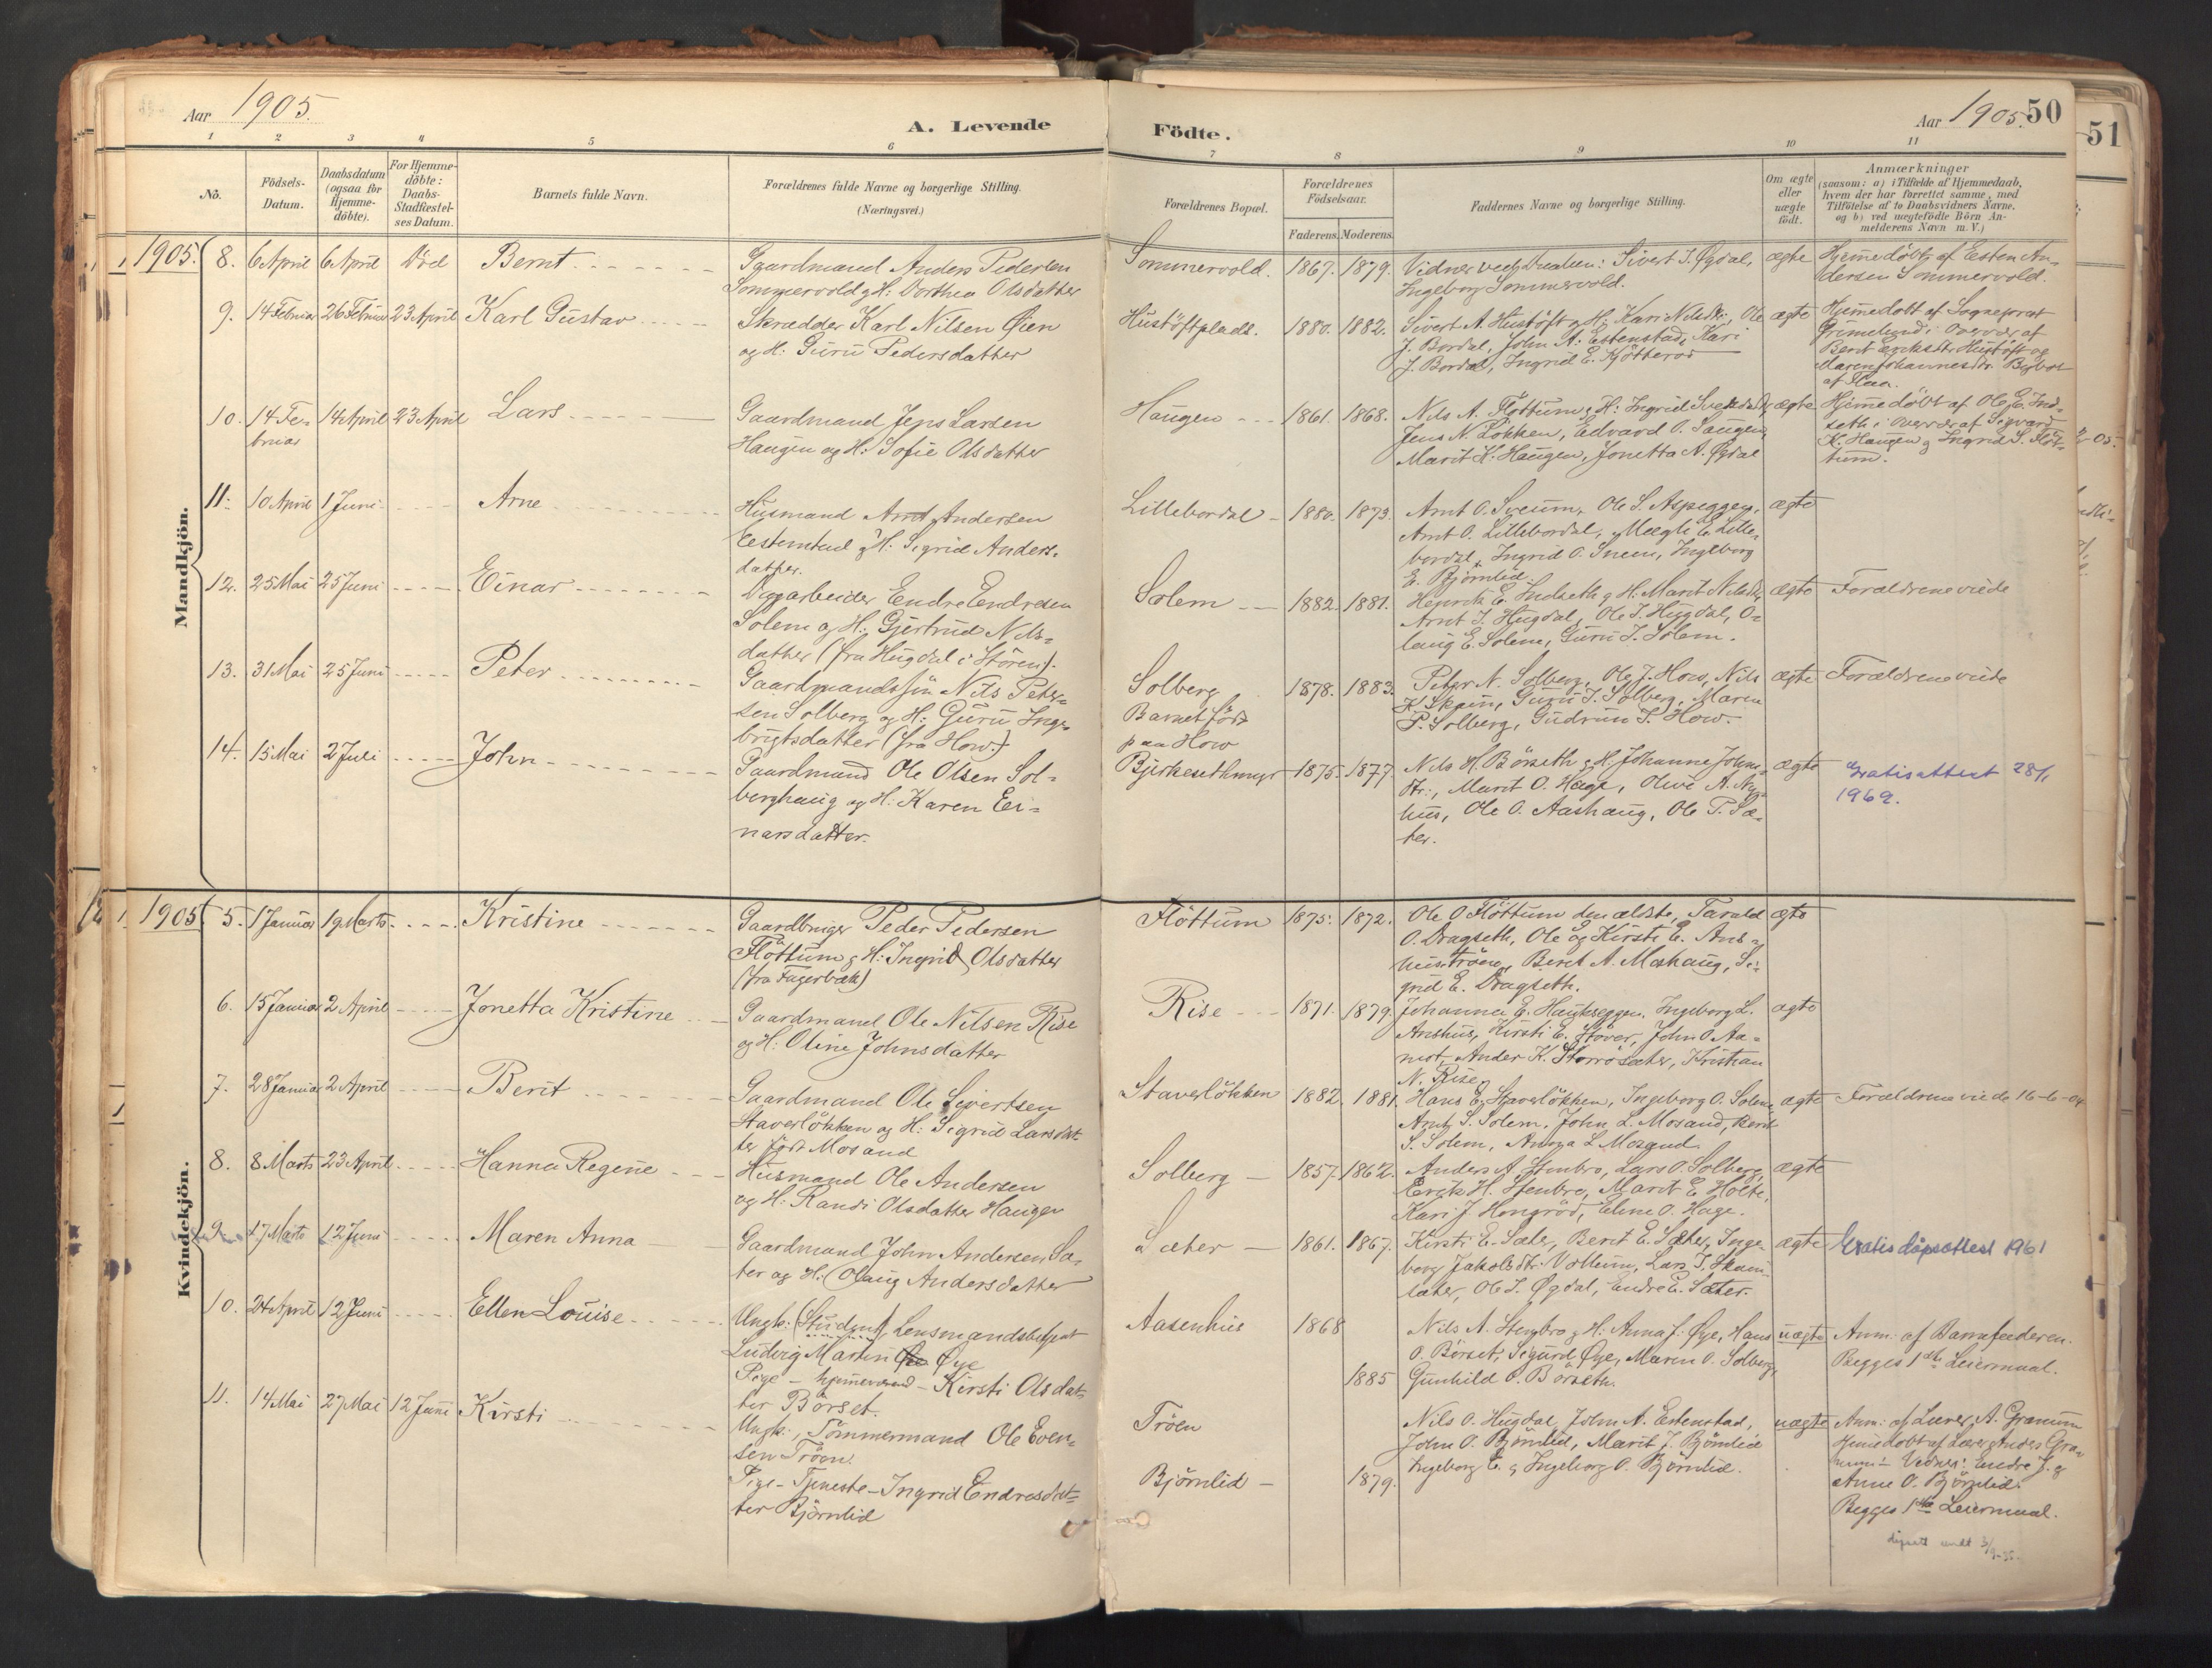 Aar 1905.
A. Levende
Födte.
Aar 1905. 50
51
1 2 3 4 5 6 7 8 9 10 11
No.
Födsels-
Datum.
Daabsdatum
(ogsaa for
Hjemme-
döbte).
For Hjemme-
döbte:
Daabs-
Stadfæstel-
ses Datum.
Barnets fulde Navn.
Forældrenes fulde Navne og borgerlige Stilling.
(Næringsvei.)
Forældrenes Bopæl.
Forældrenes
Födselsaar.
Faderens. Moderens.
Faddernes Navne og borgerlige Stilling.
Om ægte
eller
uægte
födt.
Anmærkninger
(saasom: a) i Tilfælde af Hjemmedaab,
hvem der har forrettet samme, med
Tilföielse af to Daabsvidners Navne.
og b) ved uægtefödte Börn An-
melderens Navn m. V.)
Mandkjön.
1905. 8. 6 April 6 April Död Bernt
Gaardmand Anders Pedersen
Sommervold og H: Dorthea Olsdatter
Sommervold. 1867. 1879.
Vidner ved Daaben: Sivert J. Øgdal,
Ingeborg Sommervold.
ægte
Hjemmedöbt af Esten An-
dersen Sommervold.
9. 14 Februar 26 Februar 23 April Karl Gustav
Skrædder Karl Nilsen Öien
og H: Guru Pedersdatter
Hustöftplads. 1880. 1882.
Sivert A. Hustöft og H. Kari Nilsdtr, Ole
J. Bordal, John A. Estenstad, Kari
J. Bordal, Ingrid E. Kjötteröd
ægte
Hjemmedöbt af Sogneprest
Grimelund i Overvær af
Berit Eriksdtr. Hustöft og
Maren Johannesdtr.
af Flaa.
10. 14 Fe-
bruar
14 April 23 April Lars
Gaardmand Jens Larsen
Haugen og H: Sofie Olsdatter
Haugen 1861. 1868.
Nils A. Flöttum og H: Ingrid Svendsdtr,
Jens N. Lökken, Edvard O. Haugen,
Marit K. Haugen, Jonetta A. Øgdal
ægte
Hjemmedöbt af Ole E. Ind-
seth i Overvær af Sigvard
K. Haugen og Ingrid S. Flöt-
tum.
11. 10 April 1 Juni Arne
Husmand Arnt Andersen
Estenstad og H: Sigrid Anders-
datter.
Lillebordal 1880. 1873.
Arnt O. Sveum, Ole S. Aspeggen,
Arnt O. Lillebordal, Magli E. Lille-
bordal, Ingrid O. Sneen, Ingeborg
E. Bjömlid
ægte
12. 25 Mai 25 Juni Einar
Dagarbeider Endre Endresen
Solem og H: Gjertrud Nils-
datter (fra Hugdal i Stören).
Solem 1882. 1881.
Henrik E. Indseth og H. Marit Nilsdtr,
Arnt J. Hugdal, Ole J. Hugdal, O-
laug E. Solem, Guru J. Solem.
ægte
Forældrene viede
13. 31 Mai 25 Juni Peter
Gaardmandssön Nils Peter-
sen Solberg og H: Guru Inge-
brigtsdatter (fra How.)
Solberg
Barnet födt
paa How
1878. 1883.
Peter N. Solberg, Ole J. How, Nils
K. Skain, Guru J. Solberg, Maren
P. Solberg, Gudrun J. How.
ægte
Forældrene viede
14. 15 Mai 2 Juli John
Gaardmand Ole Olsen Sol-
berghaug og H: Karen Ei-
narsdatter.
Bjerkesethmyr 1875. 1877
Nils H. Börseth og H. Johanne Johns-
dtr., Marit O. Hage, Olive A. Ny-
hus, Ole O. Aashaug, Ole P. Sæ-
ter.
ægte
Gratisattest 28/1
1962.
Kvindekjön.
1905 5. 1 Januar 19 Marts Kristine
Gaardbruger Peder Pedersen
Flöttum og H: Ingrid Olsdatter
(fra Fagerbæk)
Flöttum 1875. 1872.
Ole O. Flöttum den ældste, Tarald
O. Dragseth, Ole og Kirsti E. Ans-
huströen, Beret A. Moshaug, Si-
grid E. Dragseth.
ægte
6. 15 Januar 2 April Jonetta Kristine
Gaardmand Ole Nilsen Rise
og H: Oline Johnsdatter
Rise 1871. 1879.
Johanna E. Haukseggen, Ingeborg L.
Anshus, Kirsti E. Stöver, John O. Aa-
mot, Ander K. Storrösæter, Kristian
N. Rise.
ægte
7. 28 Januar 2 April Berit
Gaardmand Ole Sivertsen
Staverlökken og H: Sigrid Larsdat-
ter födt Mosand
Staverlökken 1882. 1881.
Hans E. Staverlökken, Ingeborg O. Solem,
Arnt S. Solem, John L. Mosand, Berit
S. Solem, L. Mosand
ægte
Forældrene viede 16-6-04
8. 8 Marts 23 April Hanna Regine
Husmand Ole Andersen
og H: Randi Olsdatter Haugen
Solberg 1857. 1862.
Anders A. Stenbro, Lars O. Solberg,
Erik H. Stenbro, Marit E. Holte,
Kari J. Hongröd, Eline O. Hage.
ægte
9. 17 Marts 12 Juni Maren Anna
Gaardmand John Andersen Sæ-
ter og H: Olaug Andersdatter
Sæter 1861. 1867.
Kirsti E. Sæter, Berit E. Sæter, Inge-
borg Jakobsdtr. Vollum, Lars J. Skain-
sæter, Ole J. Øgdal, Endre E. Sæter.
ægte
Gratis dåpsattest 1961
10. 24 April 12 Juni Ellen Louise
Ungk: (Student) Lensmandsbetjent
Ludvig Martin Øye
Pige - hjemmeværend - Kirsti Olsdat-
ter Börset.
Aasenhus 1868
1885
Nils A. Stenbro og H: Anna J. Øye, Hans
O. Börset, Sigurd Øye, Maren O. Solberg,
Gunhild O. Börseth.
uægte
Anm: af Barnefaderen.
Begges 1ste Leiermaal.
11. 14 Mai 27 Mai 12 Juni Kirsti
Ungk:, Tömmermand Ole Even-
sen Tröen.
Pige - Tjeneste - Ingrid Endresdat-
ter Bjömlid
Tröen
Björnlid 1879.
Nils O. Hugdal, John A. Estenstad,
John O. Bjömlid, Marit J. Bjömlid
Ingeborg E. og Ingeborg O. Bjömlid.
uægte
Anm: af Lærer A. Granum
Hjemmedöbt af Lærer Anders Gra-
num - Vidner: Endre J. og
Anne O. Bjömlid.
Begges 1ste Leiermaal.